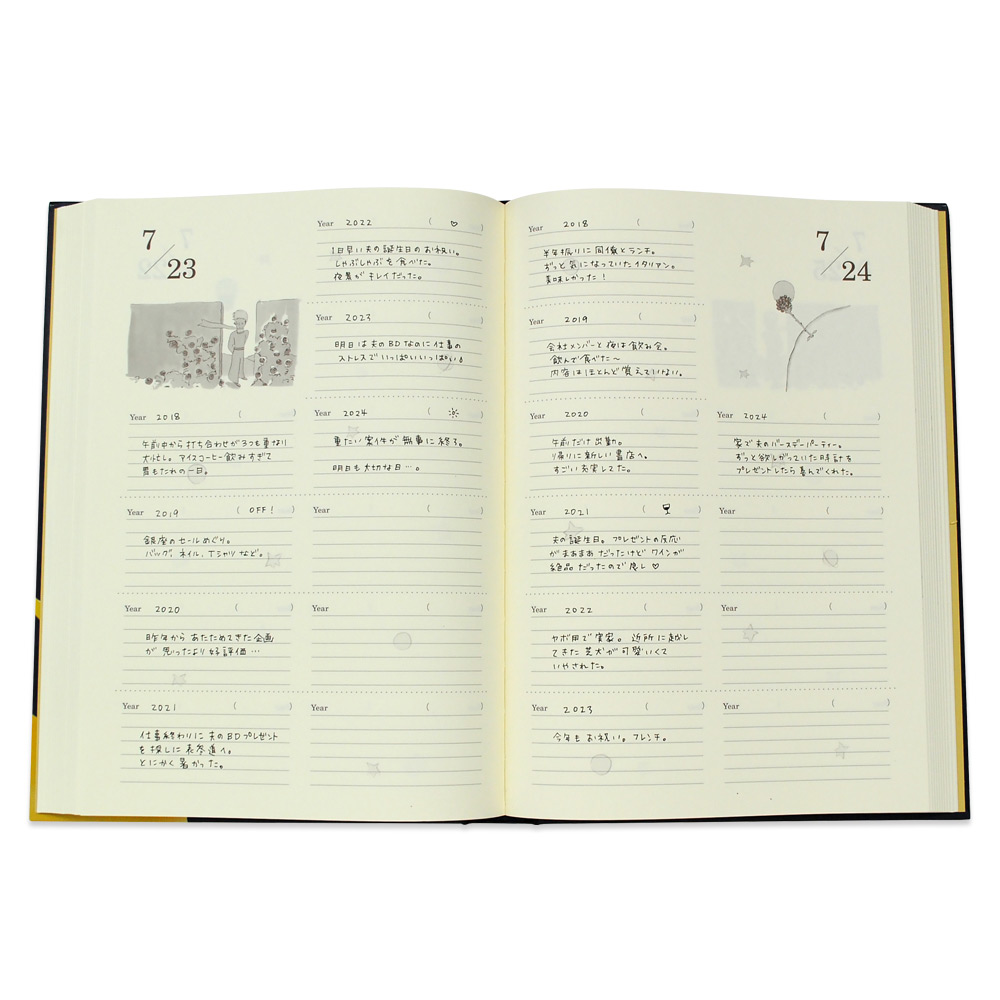 7/23
Year 2018 ( )
午前中から打ち合わせが3つも重なり
大忙し。アイスコーヒー飲みすぎて
胃もたれの一日。
Year 2019 ( OFF! )
銀座のセールめぐり。
バッグ、ネイル、Tシャツなど。
Year 2020 ( )
昨年からあたためてきた企画
が思ったより好評価…
Year 2021 ( )
仕事終わりに夫のBDプレゼント
を探しに表参道へ。
とにかく暑かった。
Year 2022 ( ♡ )
1日早い夫の誕生日のお祝い。
しゃぶしゃぶを食べた。
夜景がキレイだった。
Year 2023 ( )
明日は夫のBDなのに仕事の
ストレスでいっぱいいっぱい!
Year 2024 ( ☀ )
重たい案件が無事に終了。
明日も大切な日…。
Year ( )
Year ( )
Year ( )
7/24
Year 2018 ( )
半年振りに同僚とランチ。
ずっと気になっていたイタリアン。
美味しかった!
Year 2019 ( )
会社メンバーと夜は飲み会。
飲んで食べた〜
内容はほとんど覚えていない。
Year 2020 ( )
午前だけ出勤。
帰りに新しい書店へ。
すごい充実してた。
Year 2021 ( 🍷 )
夫の誕生日。プレゼントの反応
がまあまあだったけどワインが
絶品だったので良し♡
Year 2022 ( )
ヤボ用で実家。近所に越し
てきた芝犬が可愛いくて
いやされた。
Year 2023 ( )
今年もお祝い。フレンチ。
Year 2024 ( )
家で夫のバースデーパーティー。
ずっと欲しがっていた時計を
プレゼントしたら喜んでくれた。
Year ( )
Year ( )
Year ( )